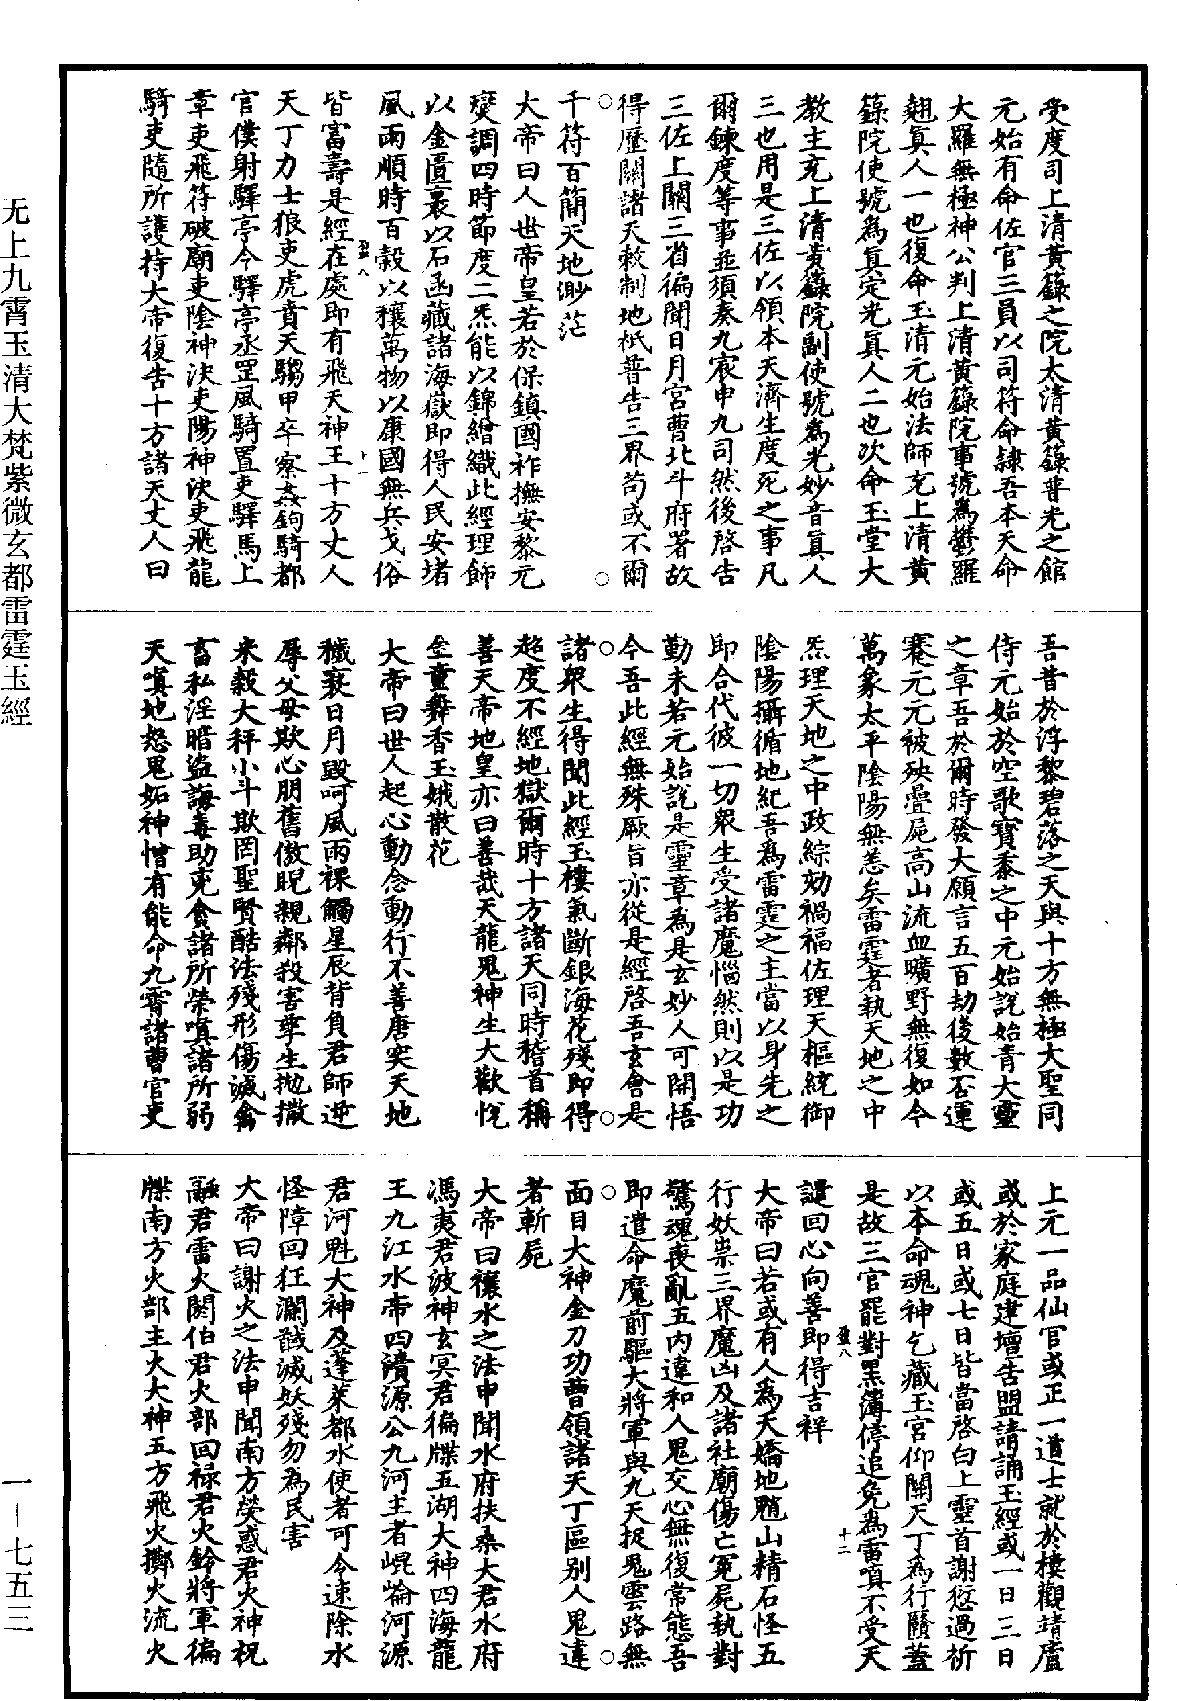 受度司上清黃籙之院太清黃籙普光之館
元始有命佐官三員以司符命隸吾本天命
大羅無極神公判上清黃籙院事號為鬱羅
翹真人一也復命玉清元始法師充上清黃
籙院使號為真定光真人二也次命玉堂大
教主充上清黃籙院副使號為光妙音真人
三也用是三佐以領本天濟生度死之事凡
爾鍊度等事並須奏九宸申九司然後啓告
三佐上關三省徧聞日月宮曹北斗府署故
得歷關諸天敕制地祇普告三界苟或不爾
千符百簡天地渺茫
大帝曰人世帝皇若於保鎮國祚撫安黎元
燮調四時節度二炁能以錦繒織此經理飾
以金匱裹以石函藏諸海嶽即得人民安堵
風雨順時百穀以穰萬物以康國無兵戈俗
皆富壽是經在處即有飛天神王十方丈人
天丁力士狼吏虎賁天騶甲卒察姦鉤騎都
官僕射驛亭令驛亭丞罡風騎置吏驛馬上
章吏飛符破廟吏陰神決吏陽神決吏飛龍
騎吏隨所護持大帝復告十方諸天丈人曰
盈八
十一
吾昔於浮黎碧落之天與十方無極大聖同
侍元始於空歌寶黍之中元始說始青大靈
之章吾於爾時發大願言五百劫後數否運
蹇元元被殃疊屍高山流血曠野無復如今
萬彖太平陰陽無恙矣雷霆者執天地之中
炁理天地之中政綜劾禍福佐理天樞統御
陰陽攝循地紀吾為雷霆之主當以身先之
即合代彼一切眾生受諸魔惱然則以是功
勤未若元始說是靈章為是玄妙人可開悟
今吾此經無殊厥旨亦從是經啓吾玄會是
諸眾生得聞此經玉樓氣斷銀海花殘即得
超度不經地獄爾時十方諸天同時稽首稱
善天帝地皇亦曰善哉天龍鬼神生大歡悅
金童舞香玉娥散花
大帝曰世人起心動念動行不善唐突天地
穢褻日月毀呵風雨裸觸星辰背負君師逆
辱父母欺心朋舊傲睨親鄰殺害孳生拋撒
米穀大秤小斗欺罔聖賢酷法殘形傷滅禽
畜私淫暗盜誨毒助兇貪諸所榮嗔諸所弱
天嗔地怒鬼妬神憎有能命九霄諸曹官吏
上元一品仙官或正一道士就於樓觀靖廬
或於家庭建壇告盟請誦玉經或一日二日
或五日或七日皆當啓白上靈首謝愆過祈
以本命魂神乞藏玉宮仰關天丁為行臆蓋
是故三官罷對黑簿停追免為雷嗔不受天
譴回心向善即得吉祥
盈八
十二
大帝曰若或有人為天嬌地魈山精石怪五
行妖祟三界魔凶及諸社廟傷亡冤屍執對
驚魂喪亂五內違和人鬼交心無復常態吾
即遣命魔前驅大將軍與九天捉鬼雲路無
面目大神金刀功曹領諸天丁區別人鬼違
者斬屍
大帝曰禳水之法申聞水府扶桑大君水府
馮夷君波神玄冥君徧牒五湖大神四海龍
王九江水帝四瀆源公九河主者崐崘河源
君河魁大神及蓬萊都水使者可令速除水
怪障回狂瀾馘滅妖殘勿為民害
大帝曰謝火之法申聞南方熒惑君火神祝
融君雷火閼伯君火部回祿君火鈴將軍徧
牒南方火部主火大神五方飛火擲火流火
无上九霄玉清大梵紫微玄都雷霆玉經
一－七五三